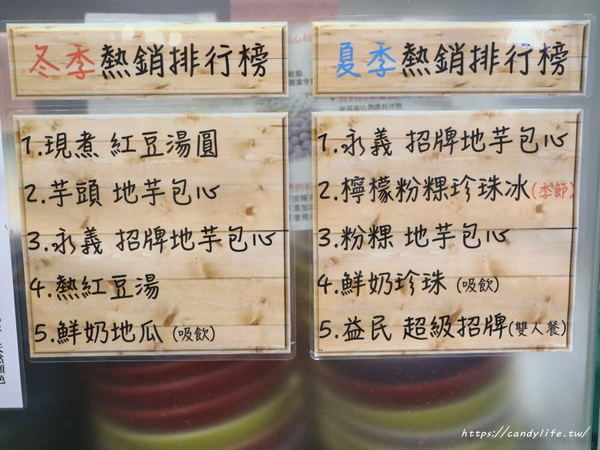 冬季熱銷排行榜
1.現煮 紅豆湯圓
2.芋頭 地芋包心
3.永義 招牌地芋包心
4.熱紅豆湯
5.鮮奶地瓜(吸飲)
夏季熱銷排行榜
1.永義 招牌地芋包心
2.檸檬粉粿珍珠冰(季節)
3.粉粿 地芋包心
4.鮮奶珍珠(吸飲)
5.益民 超級招牌(雙人餐)
https://candylife.tw/